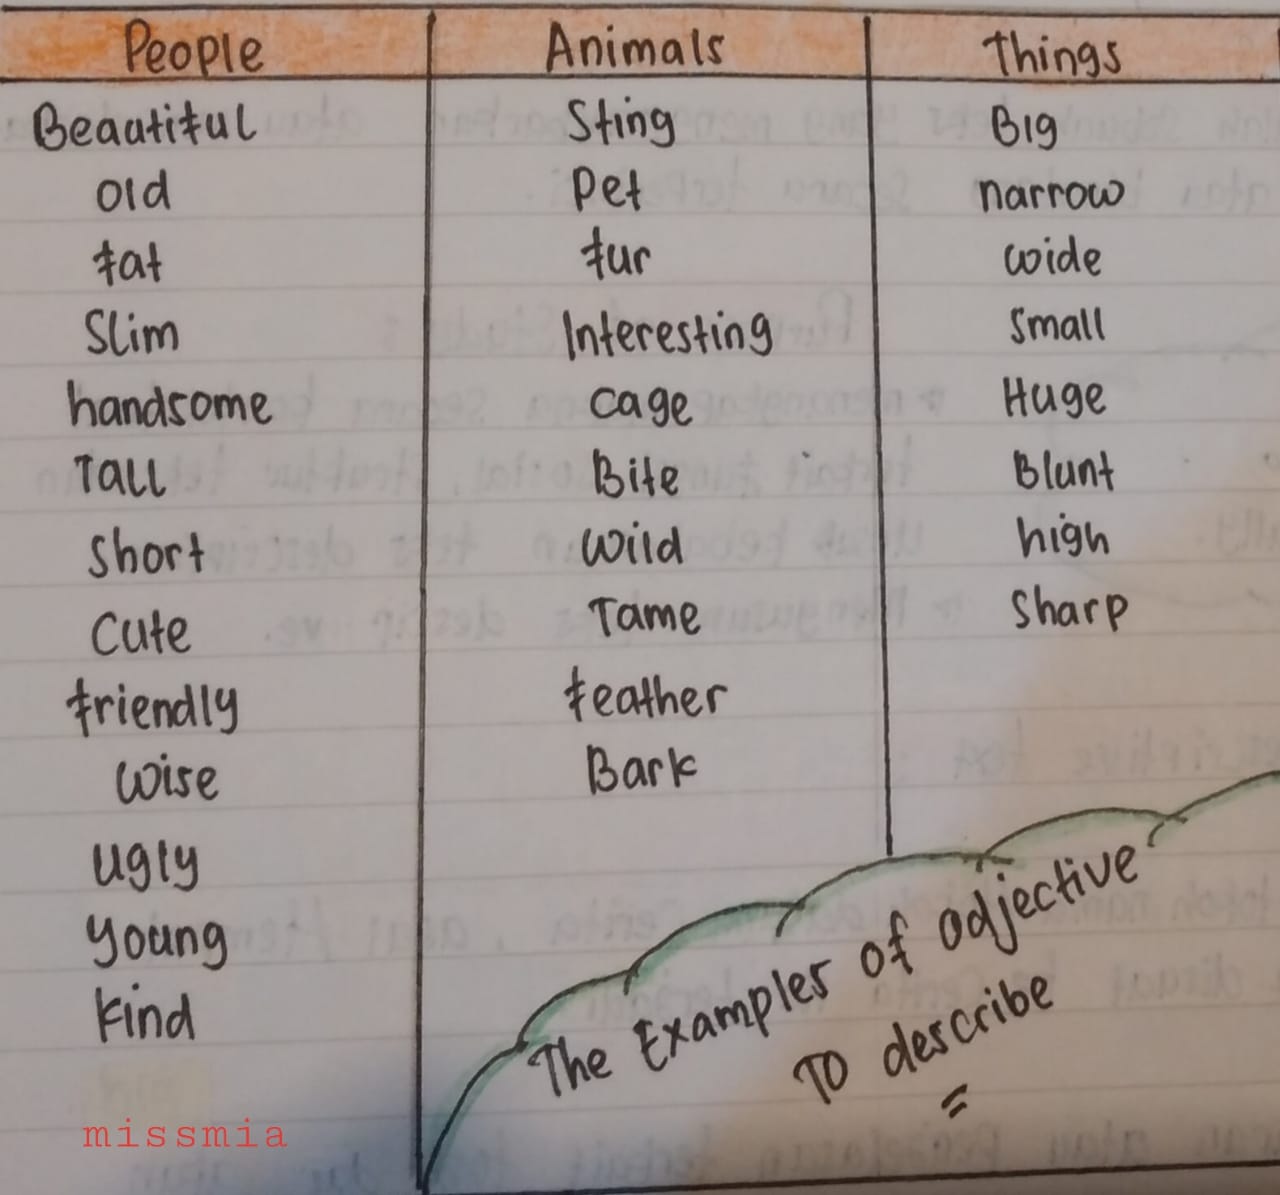 People Animals Things
Beautiful Sting Big
old Pet narrow
fat fur wide
Slim Interesting Small
handsome cage Huge
Tall Bite Blunt
short wild high
Cute Tame Sharp
friendly feather
wise Bark
ugly
young
kind
The Examples of adjective
To describe
missmia